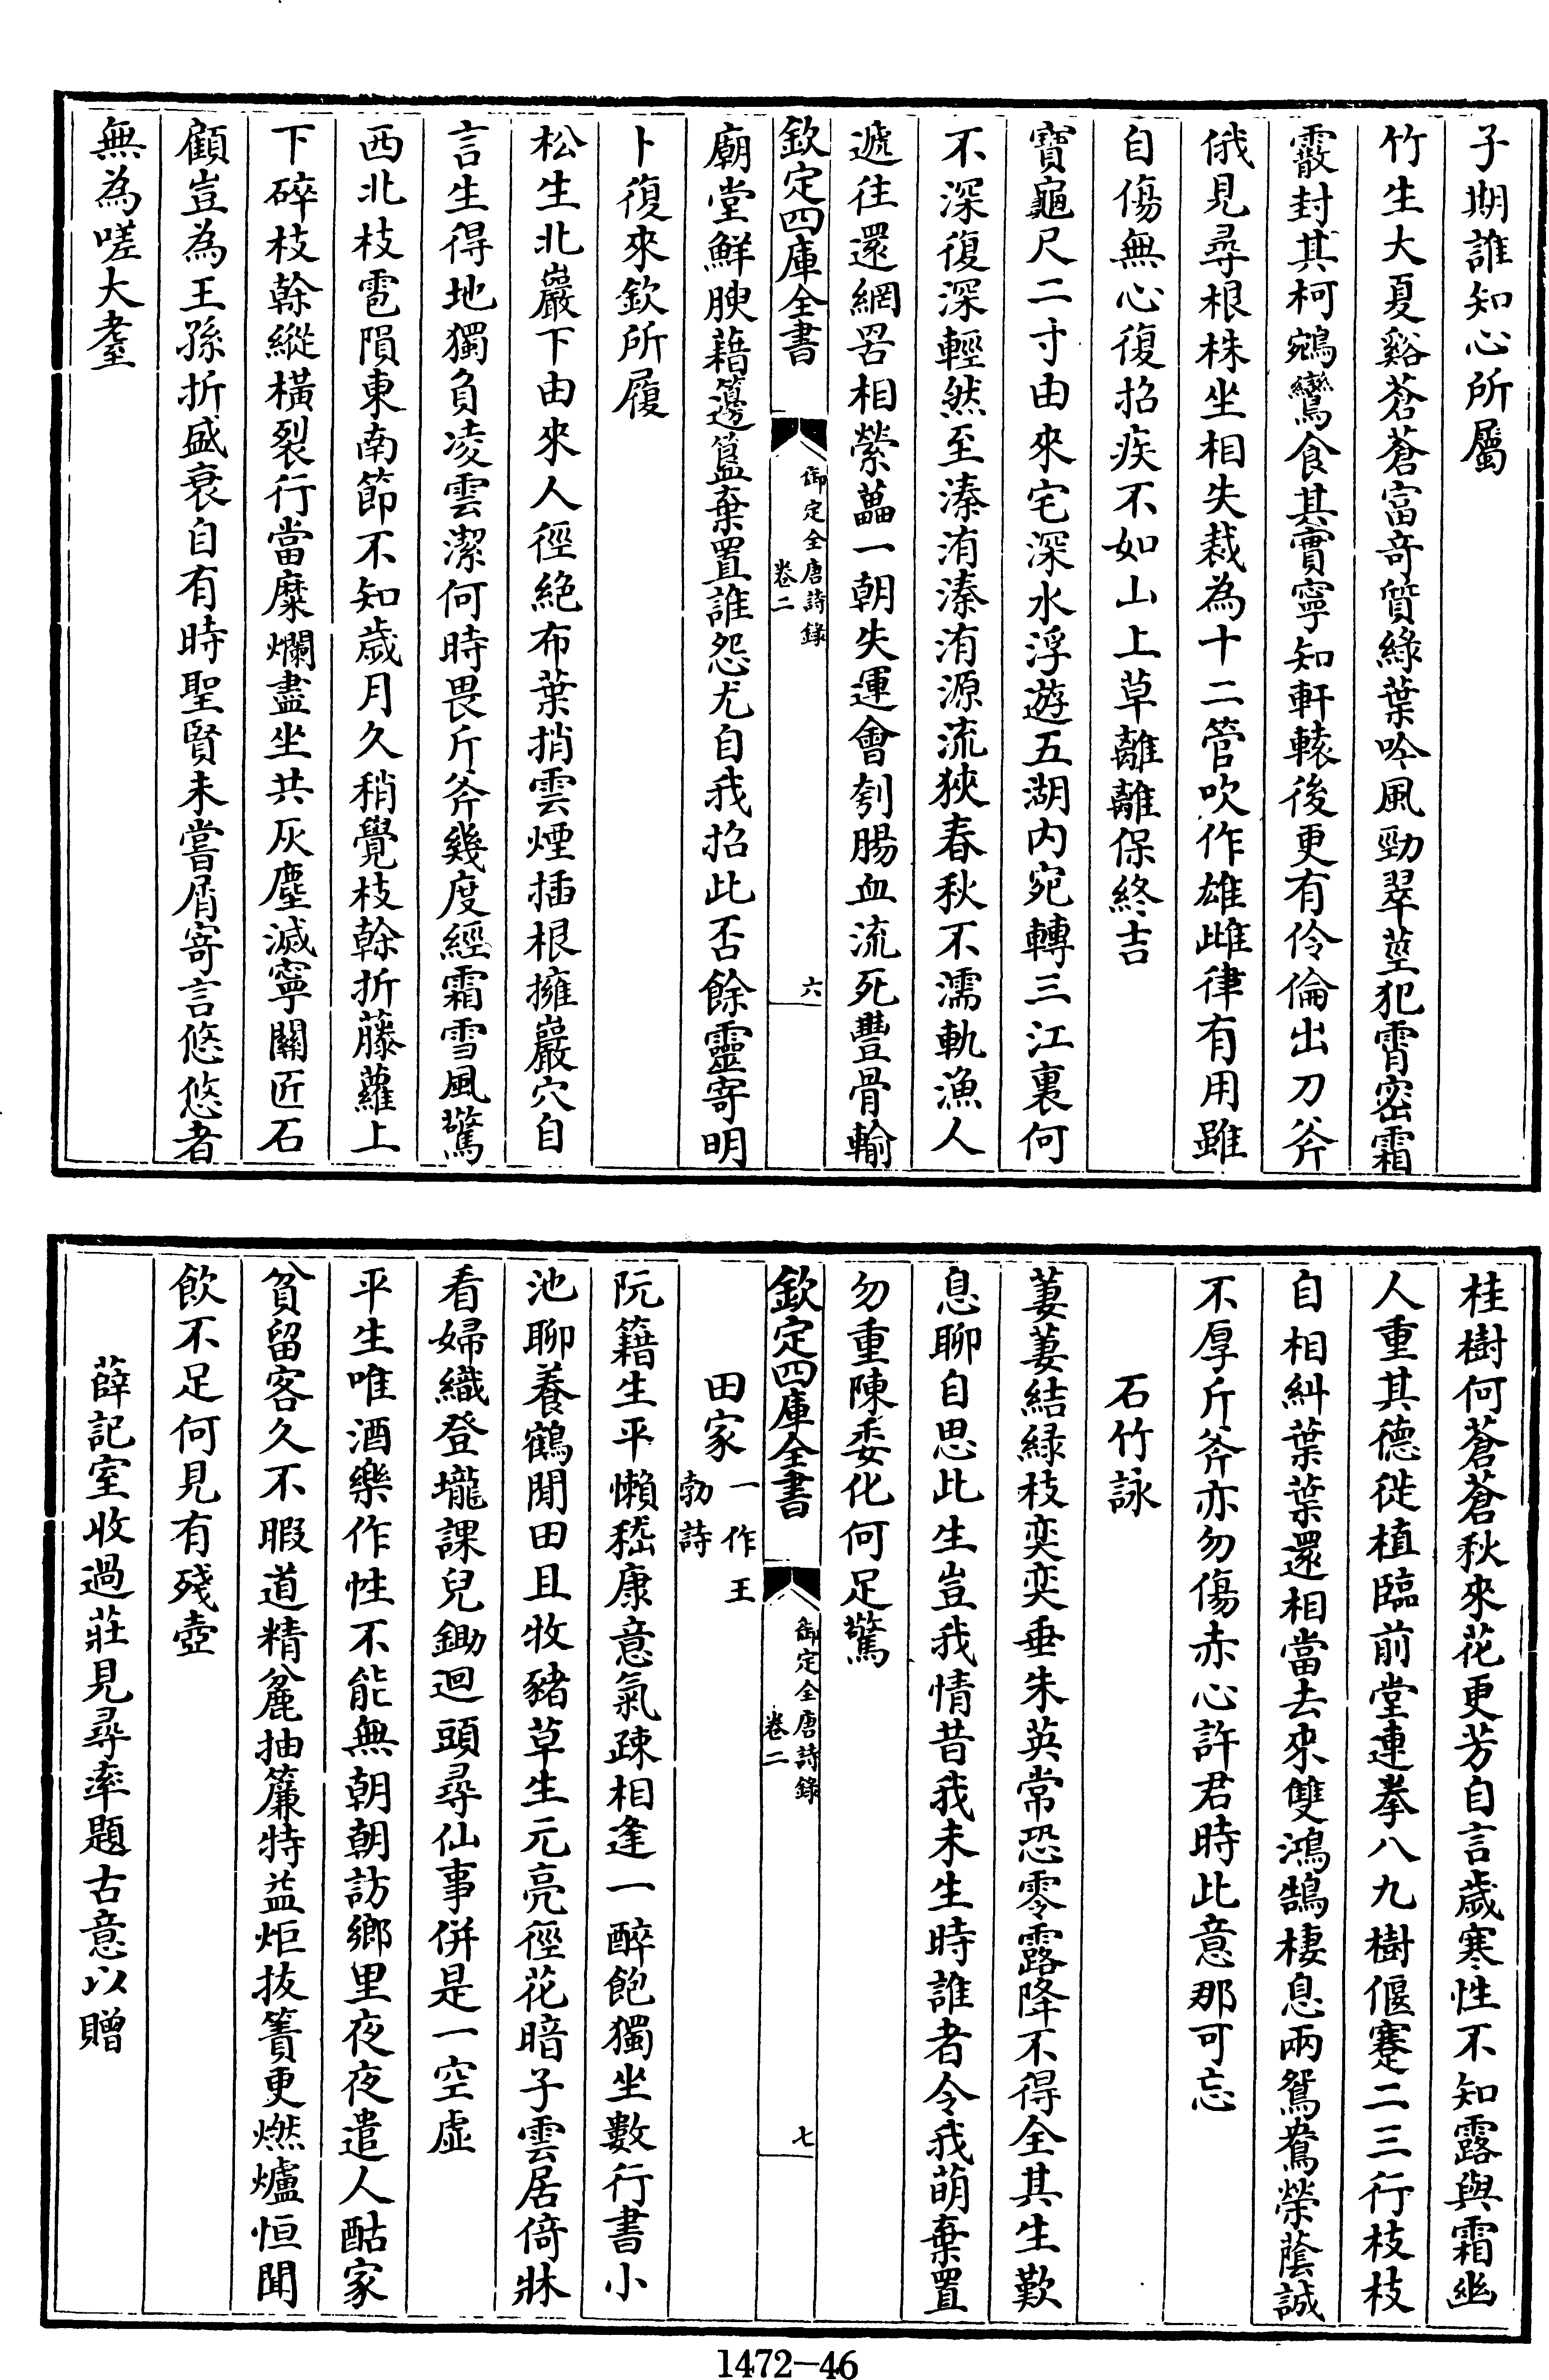 子期誰知心所屬
竹生大夏谿蒼蒼富奇質綠葉吟風勁翠莖犯霄密霜
霰封其柯鵷鸞食其實寧知軒轅後更有伶倫出刀斧
俄見尋根株坐相失裁為十二管吹作雄雌律有用雖
自傷無心復招疾不如山上草離離保終吉
寶龜尺二寸由來宅深水浮遊五湖内宛轉三江裏何
不深復深輕然至溱洧溱洧源流狹春秋不濡軌漁人
遞往還網罟相縈藟一朝失運會刳腸血流死豐骨輸
欽定四庫全書
御定全唐詩錄
卷二
六
廟堂鮮腴藉籩簋棄置誰怨尤自我招此否餘靈寄明
卜復來欽所履
松生北巖下由來人徑絶布葉捎雲煙插根擁巖穴自
言生得地獨負凌雲潔何時畏斤斧幾度經霜雪風驚
西北枝雹隕東南節不知歲月久稍覺枝幹折藤蘿上
下碎枝幹縱橫裂行當糜爛盡坐共灰塵滅寧關匠石
顧豈為王孫折盛衰自有時聖賢未嘗屑寄言悠悠者
無為嗟大耋
桂樹何蒼蒼秋來花更芳自言歲寒性不知露與霜幽
人重其德徙植臨前堂連拳八九樹偃蹇二三行枝枝
自相糾葉葉還相當去來雙鴻鵠棲息兩鴛鴦榮蔭誠
不厚斤斧亦勿傷赤心許君時此意那可忘
石竹詠
萋萋結緑枝奕奕垂朱英常恐零露降不得全其生歎
息聊自思此生豈我情昔我未生時誰者令我萌棄置
勿重陳委化何足驚
欽定四庫全書
御定全唐詩錄
卷二
七
田家一作王勃詩
阮籍生平懶嵇康意氣疎相逢一醉飽獨坐數行書小
池聊養鶴閒田且牧豬草生元亮徑花暗子雲居倚牀
看婦織登壠課兒鋤迴頭尋仙事併是一空虛
平生唯酒樂作性不能無朝朝訪鄉里夜夜遣人酤家
貧留客久不暇道精麄抽簾特益炬拔簀更燃爐恒聞
飲不足何見有殘壺
薛記室收過莊見尋率題古意以贈
1472—46